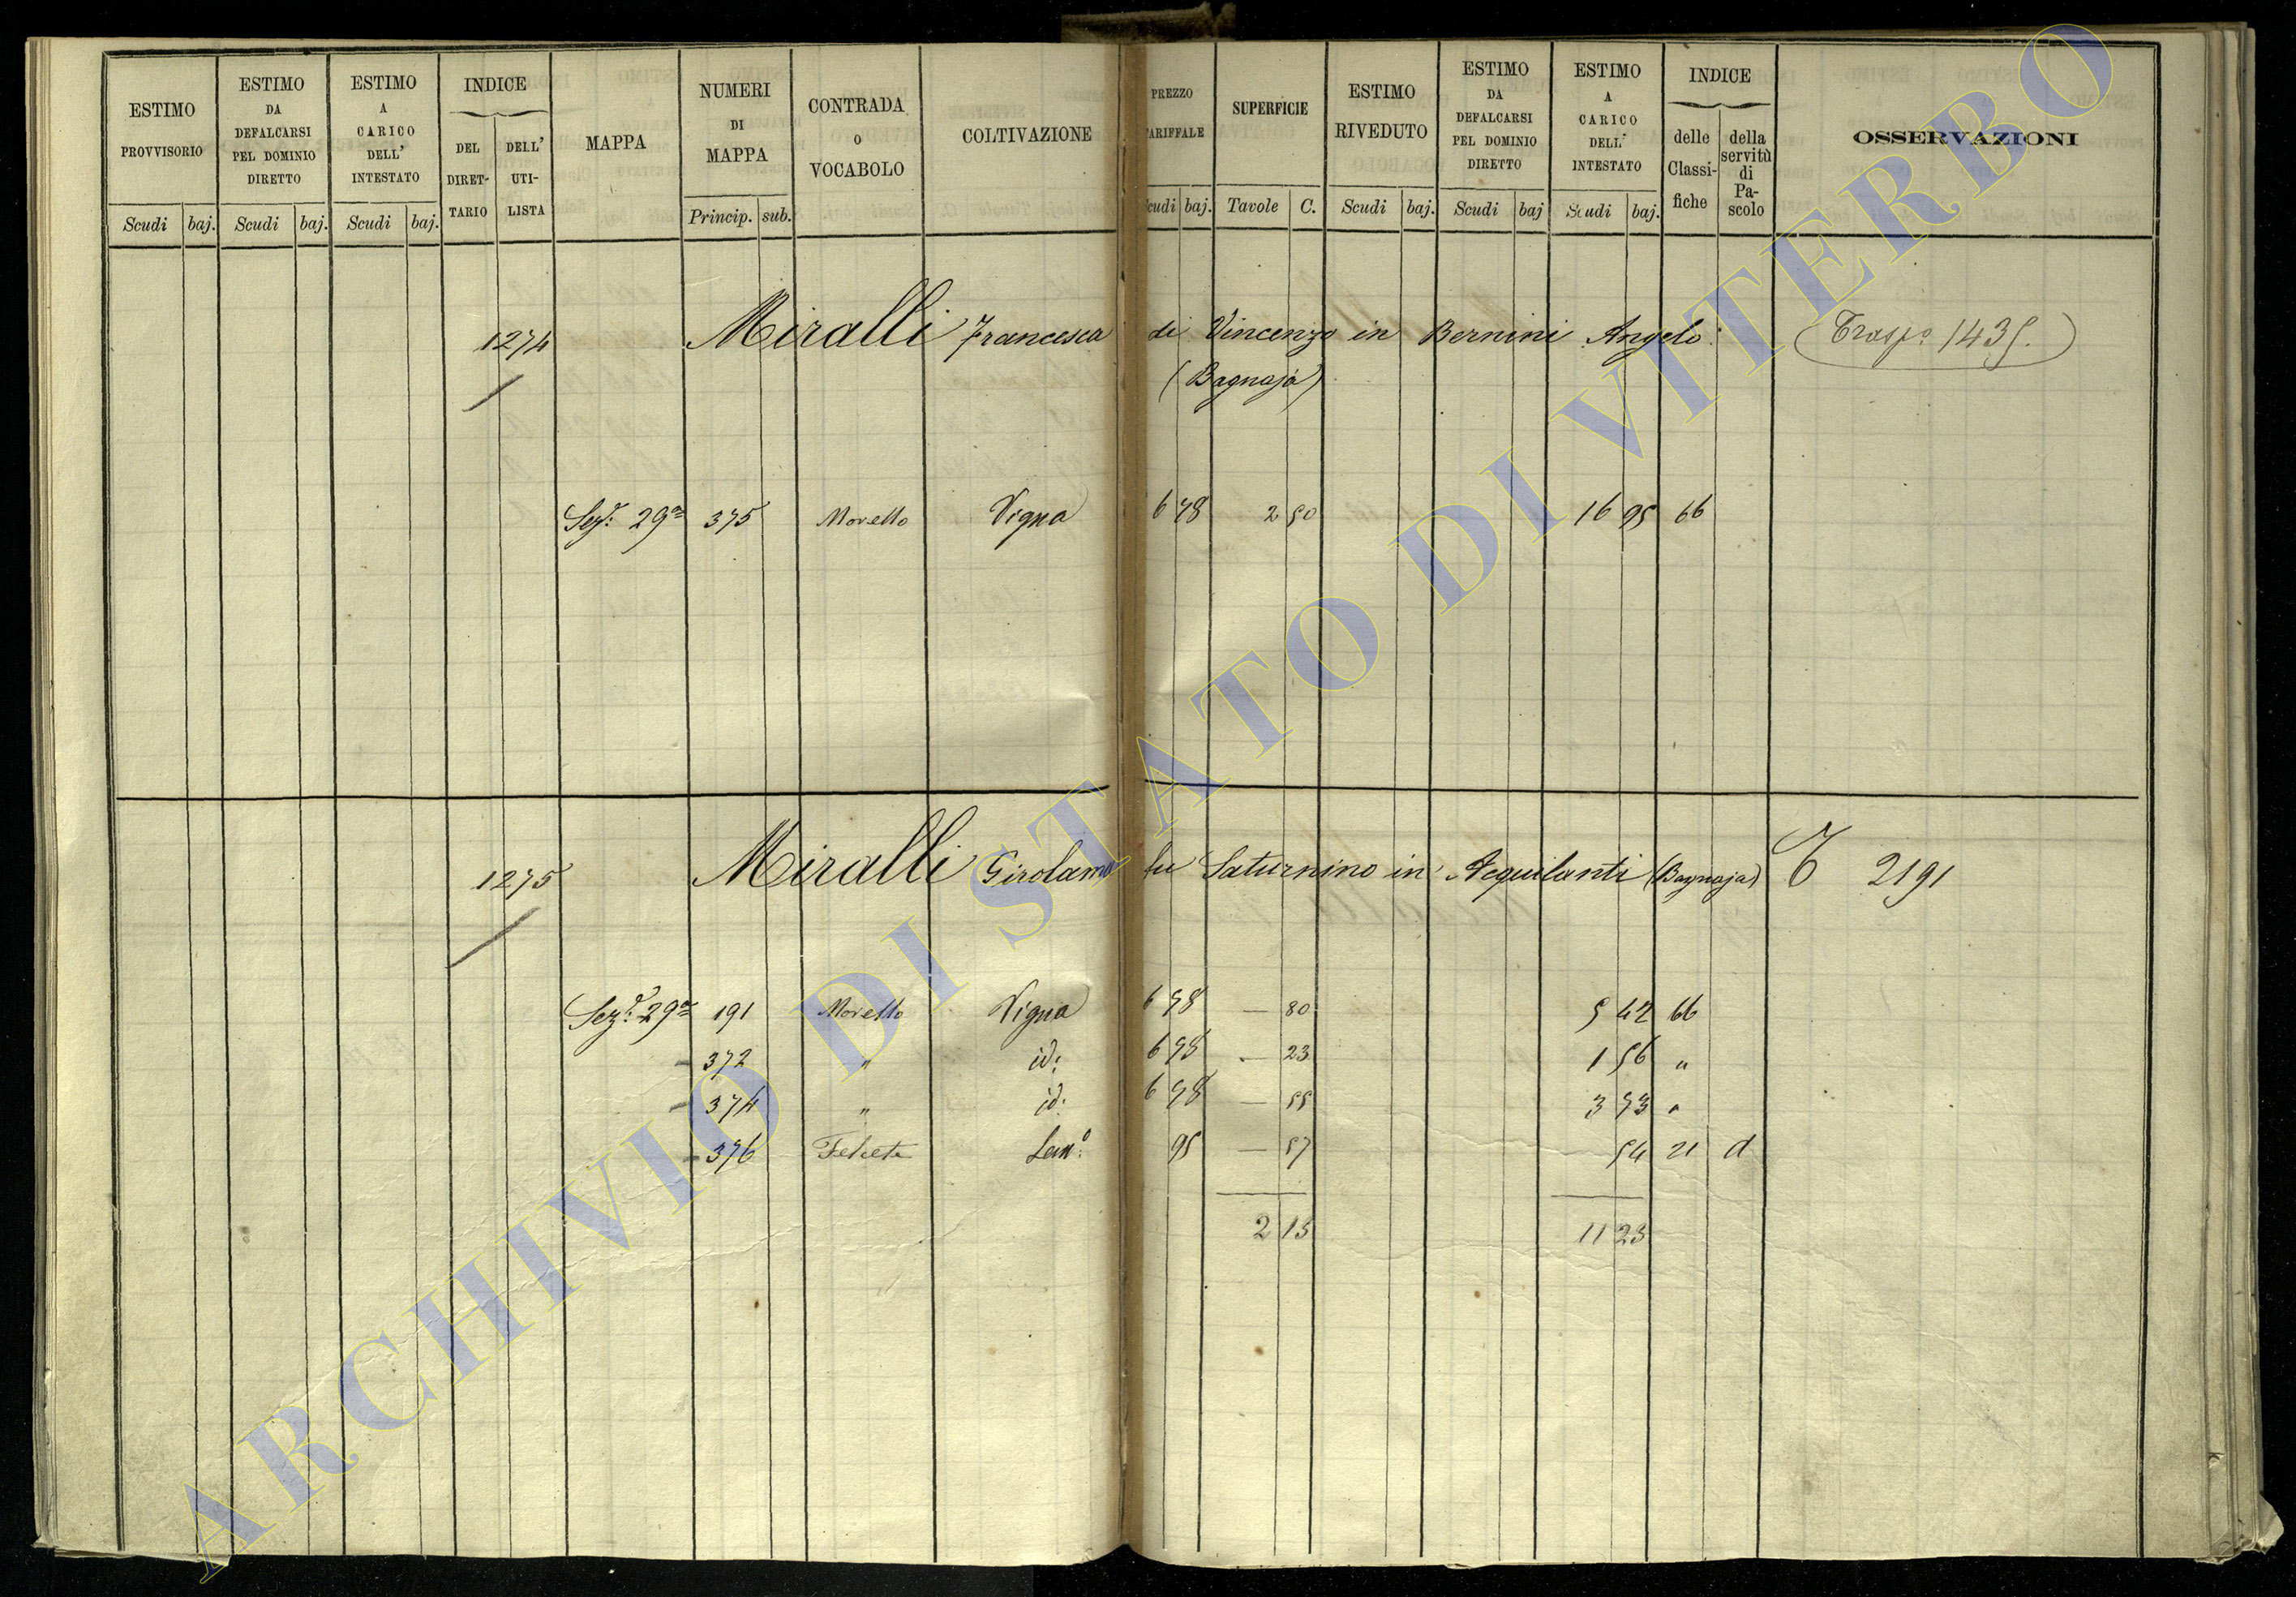 ESTIMO PROVVISORIO
ESTIMO DA DEFALCARSI PEL DOMINIO DIRETTO
ESTIMO A CARICO DELL' INTESTATO
INDICE
DEL DIRET-TARIO
DELL' UTI-LISTA
MAPPA
NUMERI DI MAPPA
CONTRADA O VOCABOLO
COLTIVAZIONE
PREZZO TARIFFALE
SUPERFICIE
ESTIMO RIVEDUTO
ESTIMO DA DEFALCARSI PEL DOMINIO DIRETTO
ESTIMO A CARICO DELL' INTESTATO
INDICE
delle Classi-fiche
della servitù di Pa-scolo
OSSERVAZIONI
Scudi baj. Scudi baj. Scudi baj. Princip. sub. Scudi baj. Tavole C. Scudi baj. Scudi baj Scudi baj.
1274 Miralli Francesca di Vincenzo in Bernini Angelo (Trasp.o 1435.)
(Bagnaja)
Sez.e 29a 375 Morello Vigna 6 78 2 50 16 95 66
1275 Miralli Girolama fu Saturnino in Acquilanti (Bagnaja) T 2191
Sez.e 29a 191 Morello Vigna 6 78 — 80 5 42 66
372 " id: 6 78 — 23 1 56 "
374 " id: 6 78 — 55 3 73 "
376 95 — 57 54 21 d
2 15 11 23
ARCHIVIO DI STATO DI VITERBO